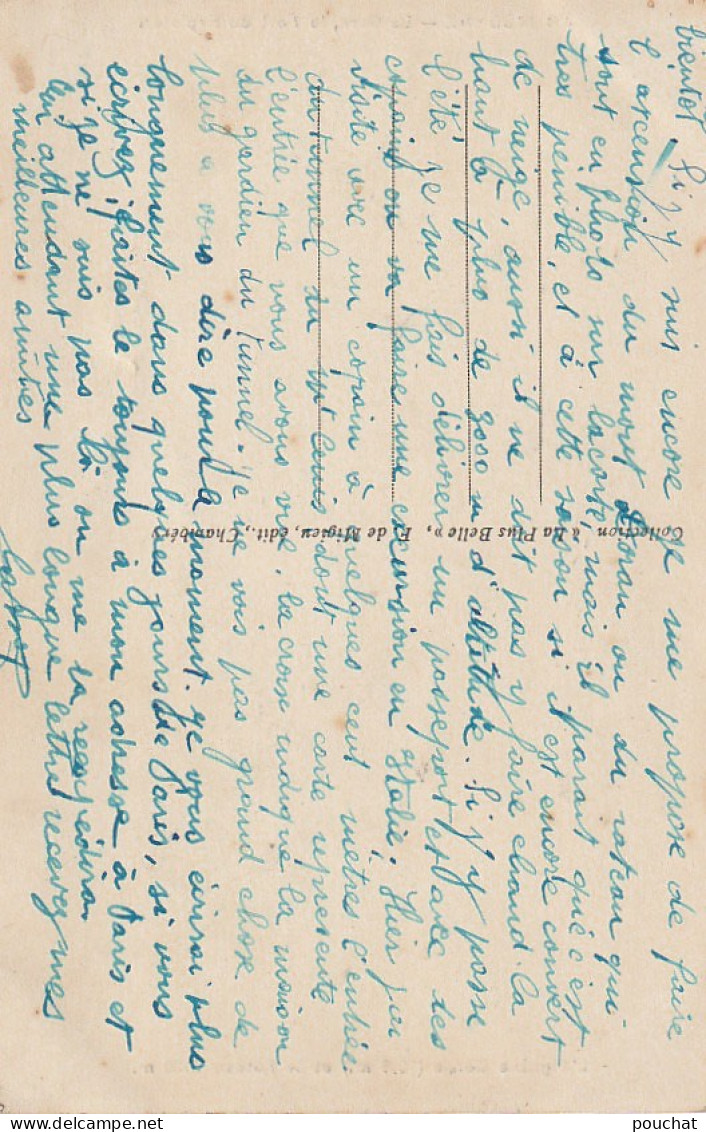 bientôt. Si j'y suis encore je me propose de faire
l'ascension du mont ou du rateau qui
sont en photo sur la carte, mais il parait que c'est
très pénible, et à cette saison si il est encore couvert
de neige, aussi il ne doit pas y faire chaud. La
haut à plus de 3000 m d'altitude. Si j'y passe
l'été je me fais délivrer un passeport et avec des
copains on va faire une excursion en Italie. Hier j'ai
visité avec un copain à quelques cent mètres l'entrée
du tunnel du dont une carte represente
l'entrée que vous avons vue, la croix indique la maison
du gardien du tunnel. Je ne vois pas grand chose de
plus a vous dire pour la moment. Je vous écrirai plus
longuement dans quelques jours de Paris, si vous
écrivez, faites le toujours à mon adresse à Paris et
si je ne suis pas là on me la reexpédira
En attendant une plus longue lettre recevez mes
meilleures amitiés
Collection « La Plus Belle », F. de Migieu, édit., Chambéry
pouchat